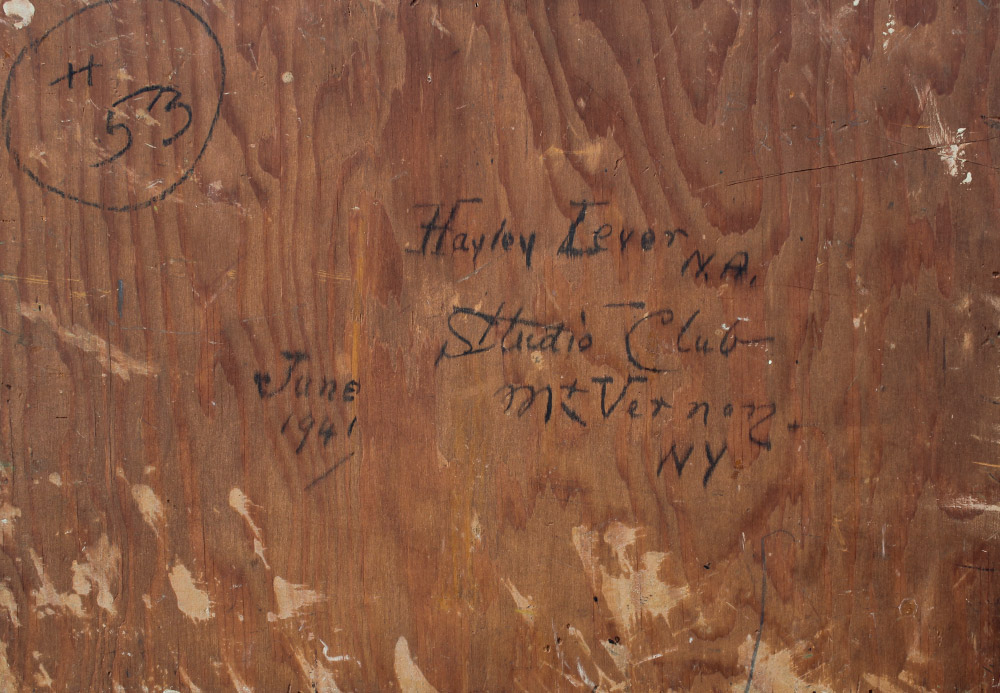 # 53
Hayley Lever
N.A.
Studio Club
Mt Vernon.
NY
June
1941